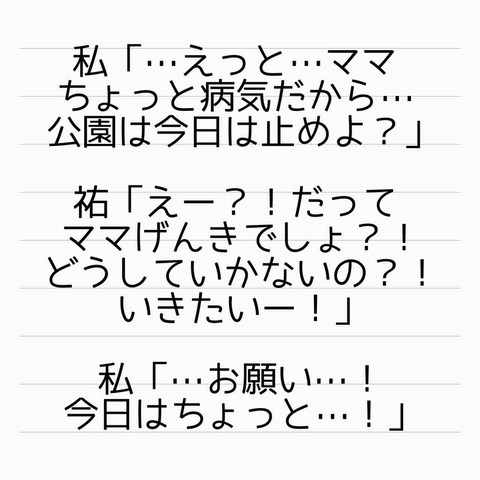 私「…えっと…ママ
ちょっと病気だから…
公園は今日は止めよ？」
祐「えー？！だって
ママげんきでしょ？！
どうしていかないの？！
いきたいー！」
私「…お願い…！
今日はちょっと…！」